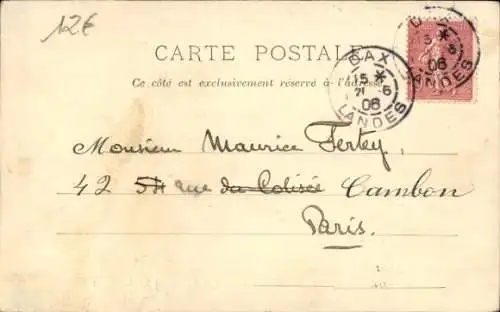 12€
CARTE POSTALE
Ce côté est exclusivement réservé à l'adresse
DAX
15 *
21 6
06
LANDES
06
LANDES
Monsieur Maurice Fertey,
42 54 rue du Colisée Cambon
Paris.